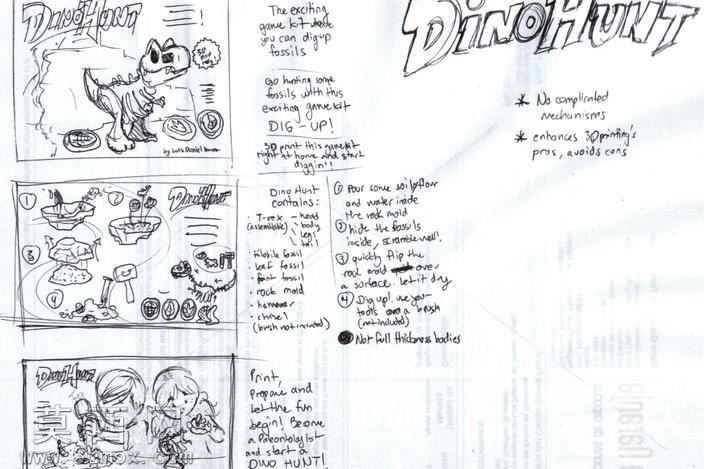 DINOHUNT
The exciting
game kit where
you can dig up
fossils
Go hunting some
fossils with this
exciting game kit
DIG-UP!
3D print this game kit
right at home and start
diggin'!
DINOHUNT
* No complicated
mechanisms
* enhances 3D printing's
pros, avoids cons
by Luis Daniel
1
2
3
4
DINOHUNT
KIT
Dino Hunt
contains:
· T-rex
(assemblable)
- head
- body
- legs
- tail
· trilobite fossil
· leaf fossil
· foot fossil
· rock mold
· hammer
· chisel
(brush not included)
1 Pour some soil, flour
and water inside
the rock mold
2 hide the fossils
inside, scramble well!
3 quickly flip the
rock mold over
a surface. Let it dry
4 Dig up! use your
tools and a brush
(not included)
Not full thickness bodies
DINOHUNT
Print,
Prepare and
Let the fun
begin! Become
a Paleontologist
and start a
DINO HUNT!
莫西网